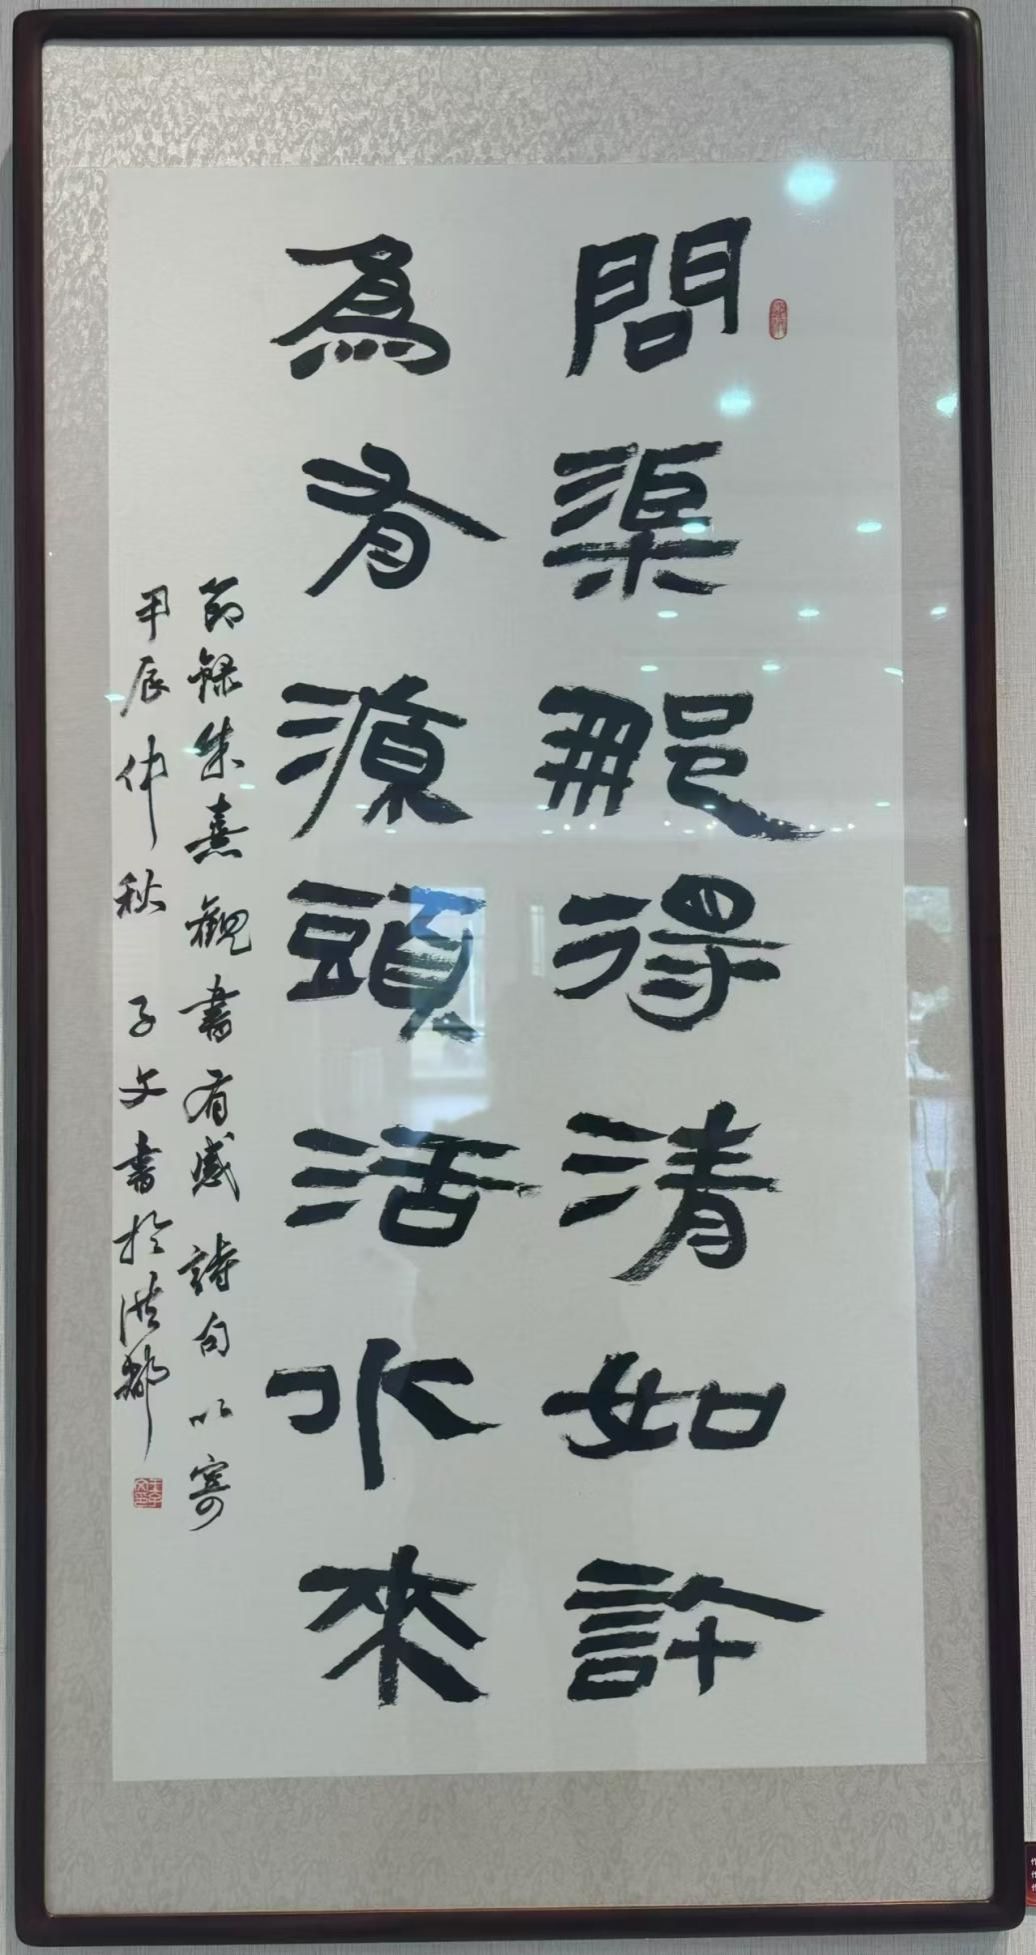 問渠那得清如許
為有源頭活水來
節錄朱熹觀書有感詩句以寄
甲辰仲秋 子文書於洪都